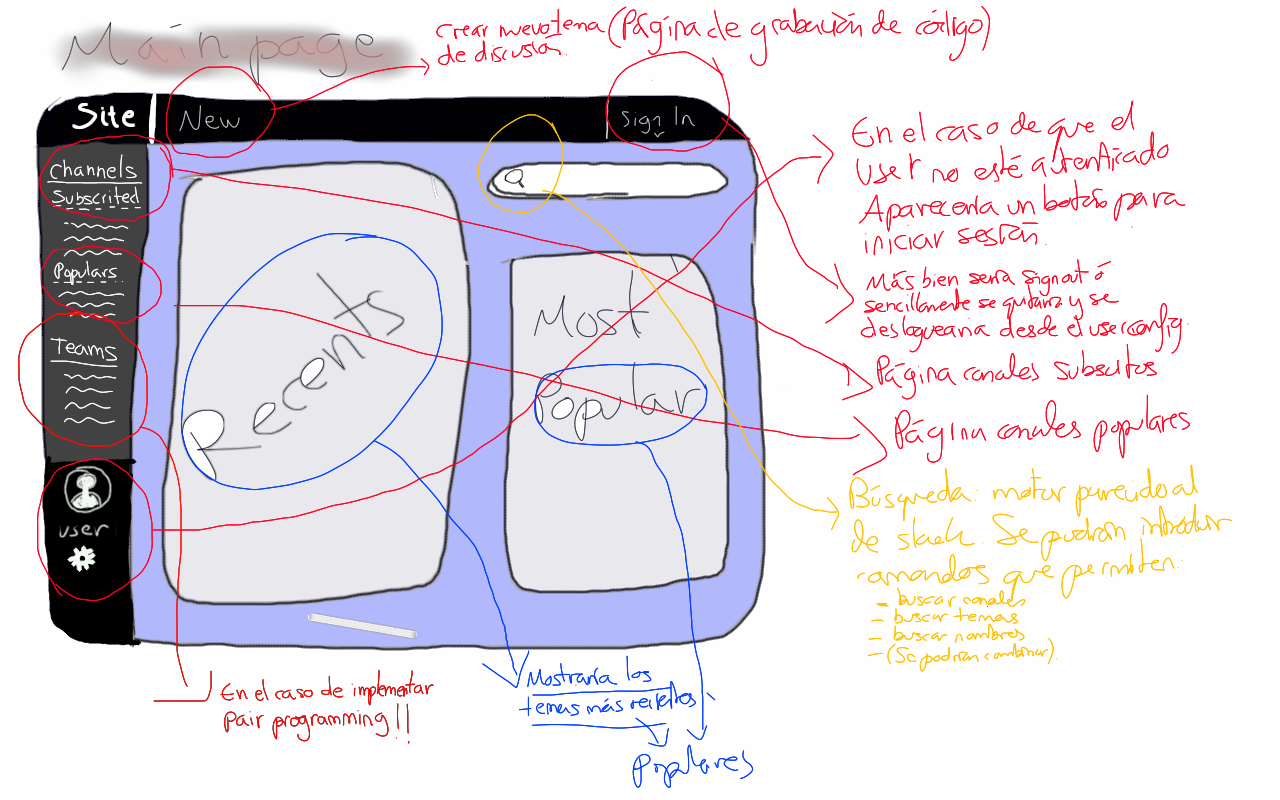 Main page
crear nuevo tema (Página de grabación de código)
de discusión.
Site
New
Sign In
Channels
Subscrited
Populars
Teams
user
Recents
Most
Popular
En el caso de que el
user no esté autentificado
Aparecería un botón para
iniciar sesión.
Más bien sería signout ó
sencillamente se quitaría y se
desloguearia desde el userconfig.
Página canales subscritos
Página canales populares
Búsqueda: motor parecido al
de slack. Se podrán introducir
comandos que permiten:
- buscar canales
- buscar temas
- buscar nombres
- (Se podrán combinar).
En el caso de implementar
pair programming!!
Mostraría los
temas más recientes
Populares